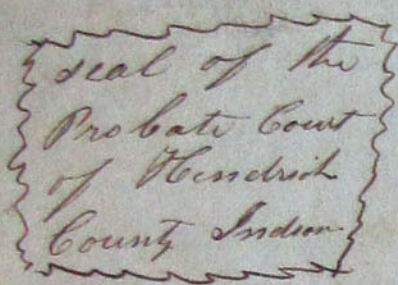 seal of the
Probate Court
of Hendrick
County Indian